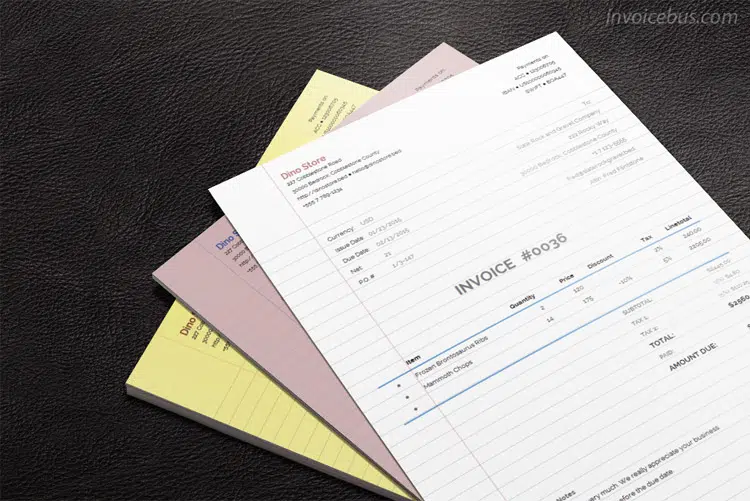 Invoicebus.com
Payments on
ACC
Payments on
Payments on
ACC • 123006705
IBAN • US100000060345
SWIFT • BOA447
Dino Store
227 Cobblestone Road
30000 Bedrock, Cobblestone County
http://dinostore.bed • hello@dinostore.bed
+555 7 789-1234
To:
Slate Rock and Gravel Company
222 Rocky Way
30000 Bedrock, Cobblestone County
+5 7 123-5555
fred@slaterockgravel.bed
Attn: Fred Flintstone
Currency USD
Issue Date 01/23/2015
Due Date 02/13/2015
Net 21
P.O. # 1/3-147
INVOICE #0036
Item Quantity Price Discount Tax Linetotal
• Frozen Brontosaurus Ribs 2 120 2% 240.00
• Mammoth Chops 14 175 -10% 5% 2205.00
•
SUBTOTAL
TAX 2%
TAX 5%
TOTAL:
PAID
AMOUNT DUE:
Notes
very much. We really appreciate your business
before the due date.
Dino S
227 Cobb
30000
http:/
+555
Dino
227 Co
3000
http
+55